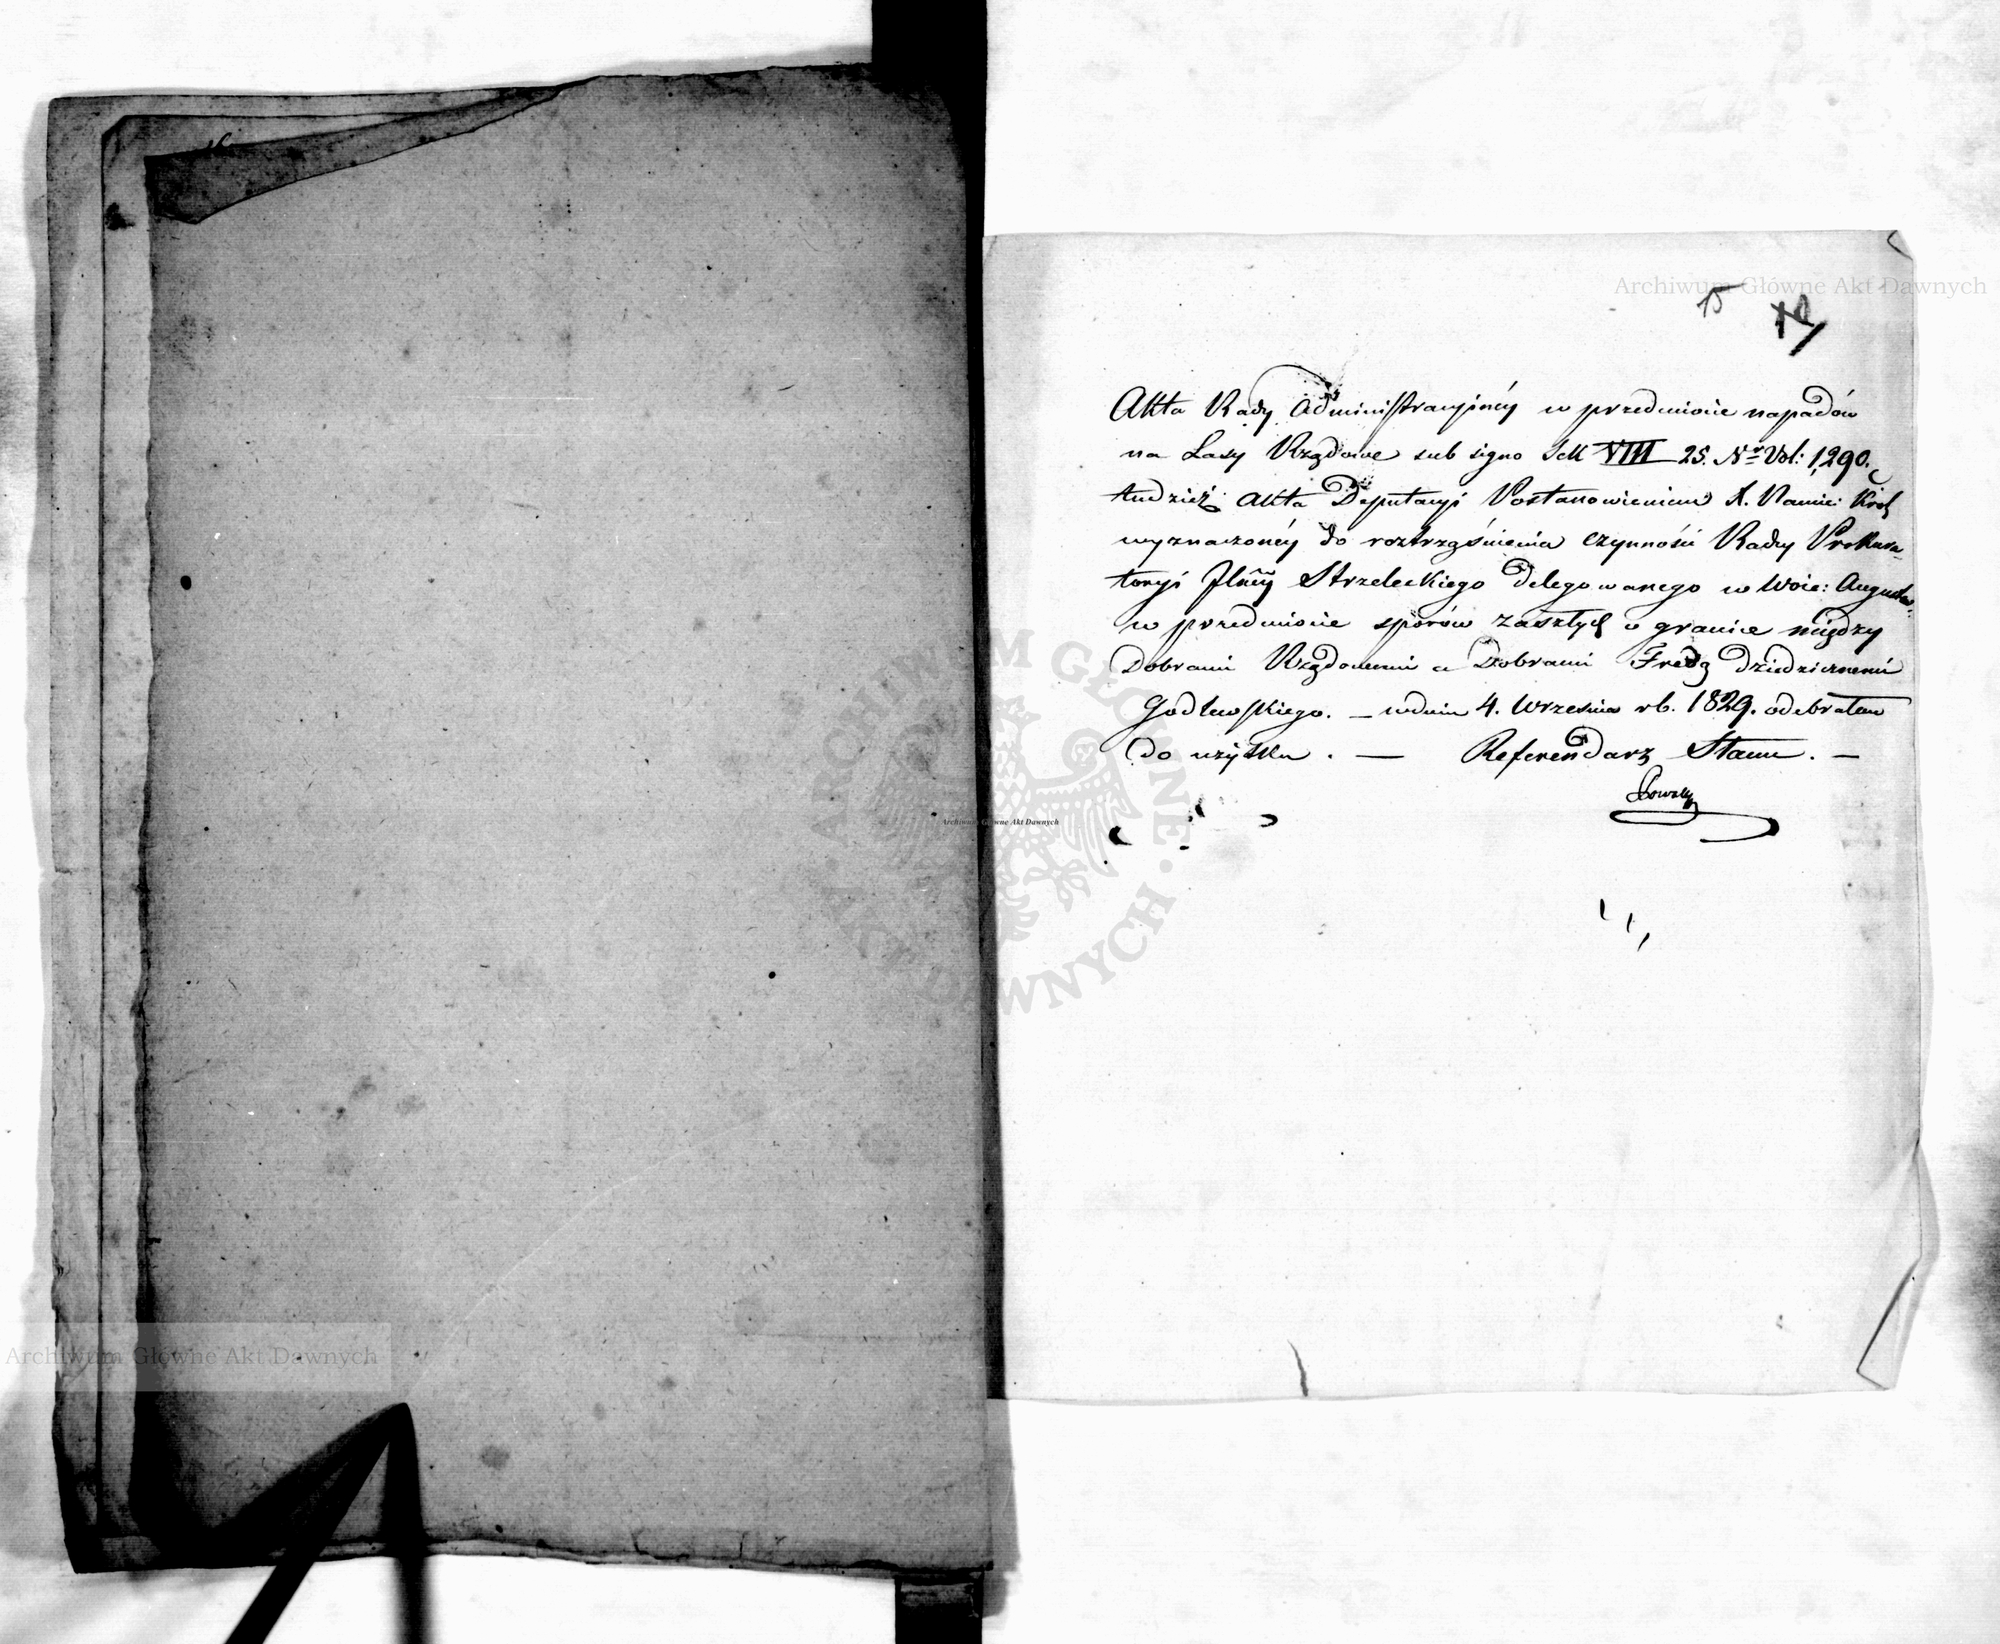 Archiwum Główne Akt Dawnych
15
Akta Rady Administracyinéy w przedmiocie napadów
na Lasy Rządowe sub signo Sek VIII 25. Nr Vol: 1290.
tudzież Akta Deputacyi Postanowieniem X. Namie: Król
wyznaczonéy do roztrząśnienia czynności Radzy Prokura-
toryi Strzeleckiego delegowanego w Woie: Augustow:
w przedmiocie sporów zaszłych o granice między
Dobrami Rządowemi a Dobrami Fredą dziedzicznemi
Godlewskiego. — w dniu 4. Września rb. 1829. odebrałem
do użytku. — Referendarz Stanu. —
ARCHIWUM GŁÓWNE AKT DAWNYCH
Archiwum Główne Akt Dawnych
Archiwum Główne Akt Dawnych